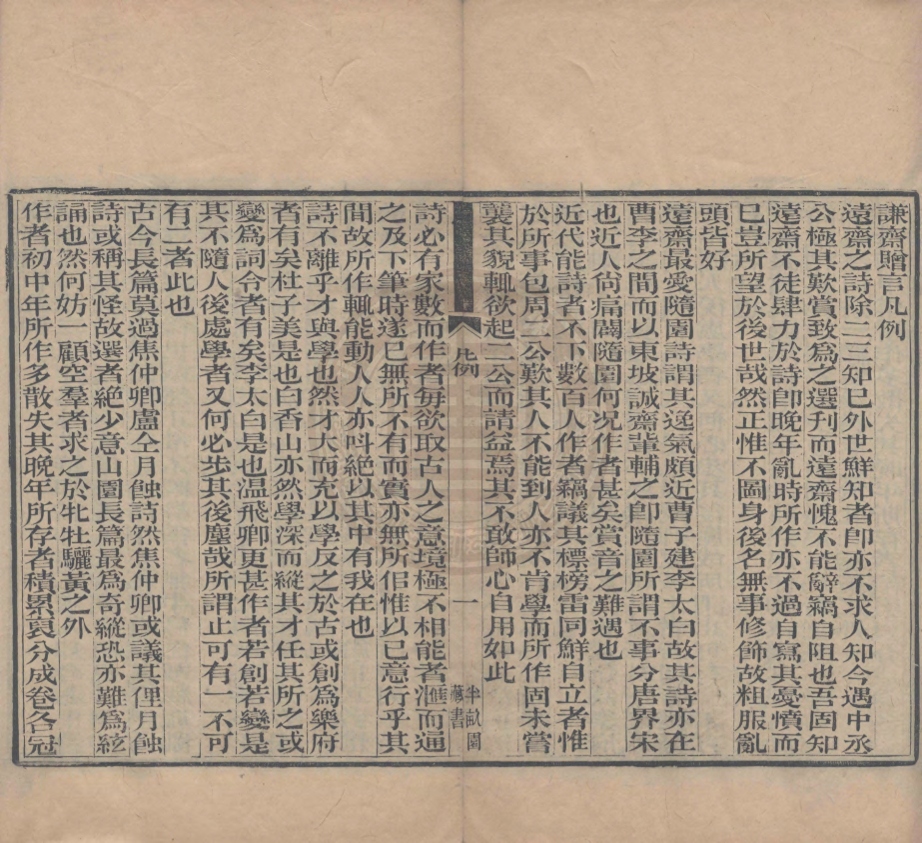 謙齋贈言凡例
遠齋之詩除二三知已外世鮮知者卽亦不求人知今遇中丞
公極其歎賞致爲之選刊而遠齋愧不能辭竊自阻也吾固知
遠齋不徒肆力於詩卽晚年亂時所作亦不過自寫其憂憤而
巳豈所望於後世哉然正惟不圖身後名無事修飾故粗服亂
頭皆好
遠齋最愛隨園詩謂其逸氣頗近曹子建李太白故其詩亦在
曹李之間而以東坡誠齋輩輔之卽隨園所謂不事分唐界宋
也近人尙痛闢隨園何况作者甚矣賞音之難遇也
近代能詩者不下數百人作者竊議其標榜雷同鮮自立者惟
於所事包周二公歎其人不能到人亦不肯學而所作固未嘗
襲其貌輒欲起二公而請益焉其不敢師心自用如此
凡例
一
半畝園
藏書
詩必有家數而作者每欲取古人之意境極不相能者滙而通
之及下筆時遂巳無所不有而實亦無所佀惟以巳意行乎其
間故所作輒能動人人亦呌絶以其中有我在也
詩不離乎才與學也然才大而充以學反之於古或創爲樂府
者有矣杜子美是也白香山亦然學深而縱其才任其所之或
變爲詞令者有矣李太白是也温飛卿更甚作者若創若變是
其不隨人後處學者又何必步其後塵哉所謂止可有一不可
有二者此也
古今長篇莫過焦仲卿盧仝月蝕詩然焦仲卿或議其俚月蝕
詩或稱其怪故選者絶少意山園長篇最爲奇縱恐亦難爲絃
誦也然何妨一顧空羣者求之於牝牡驪黃之外
作者初中年所作多散失其晚年所存者積累裒分成卷各冠